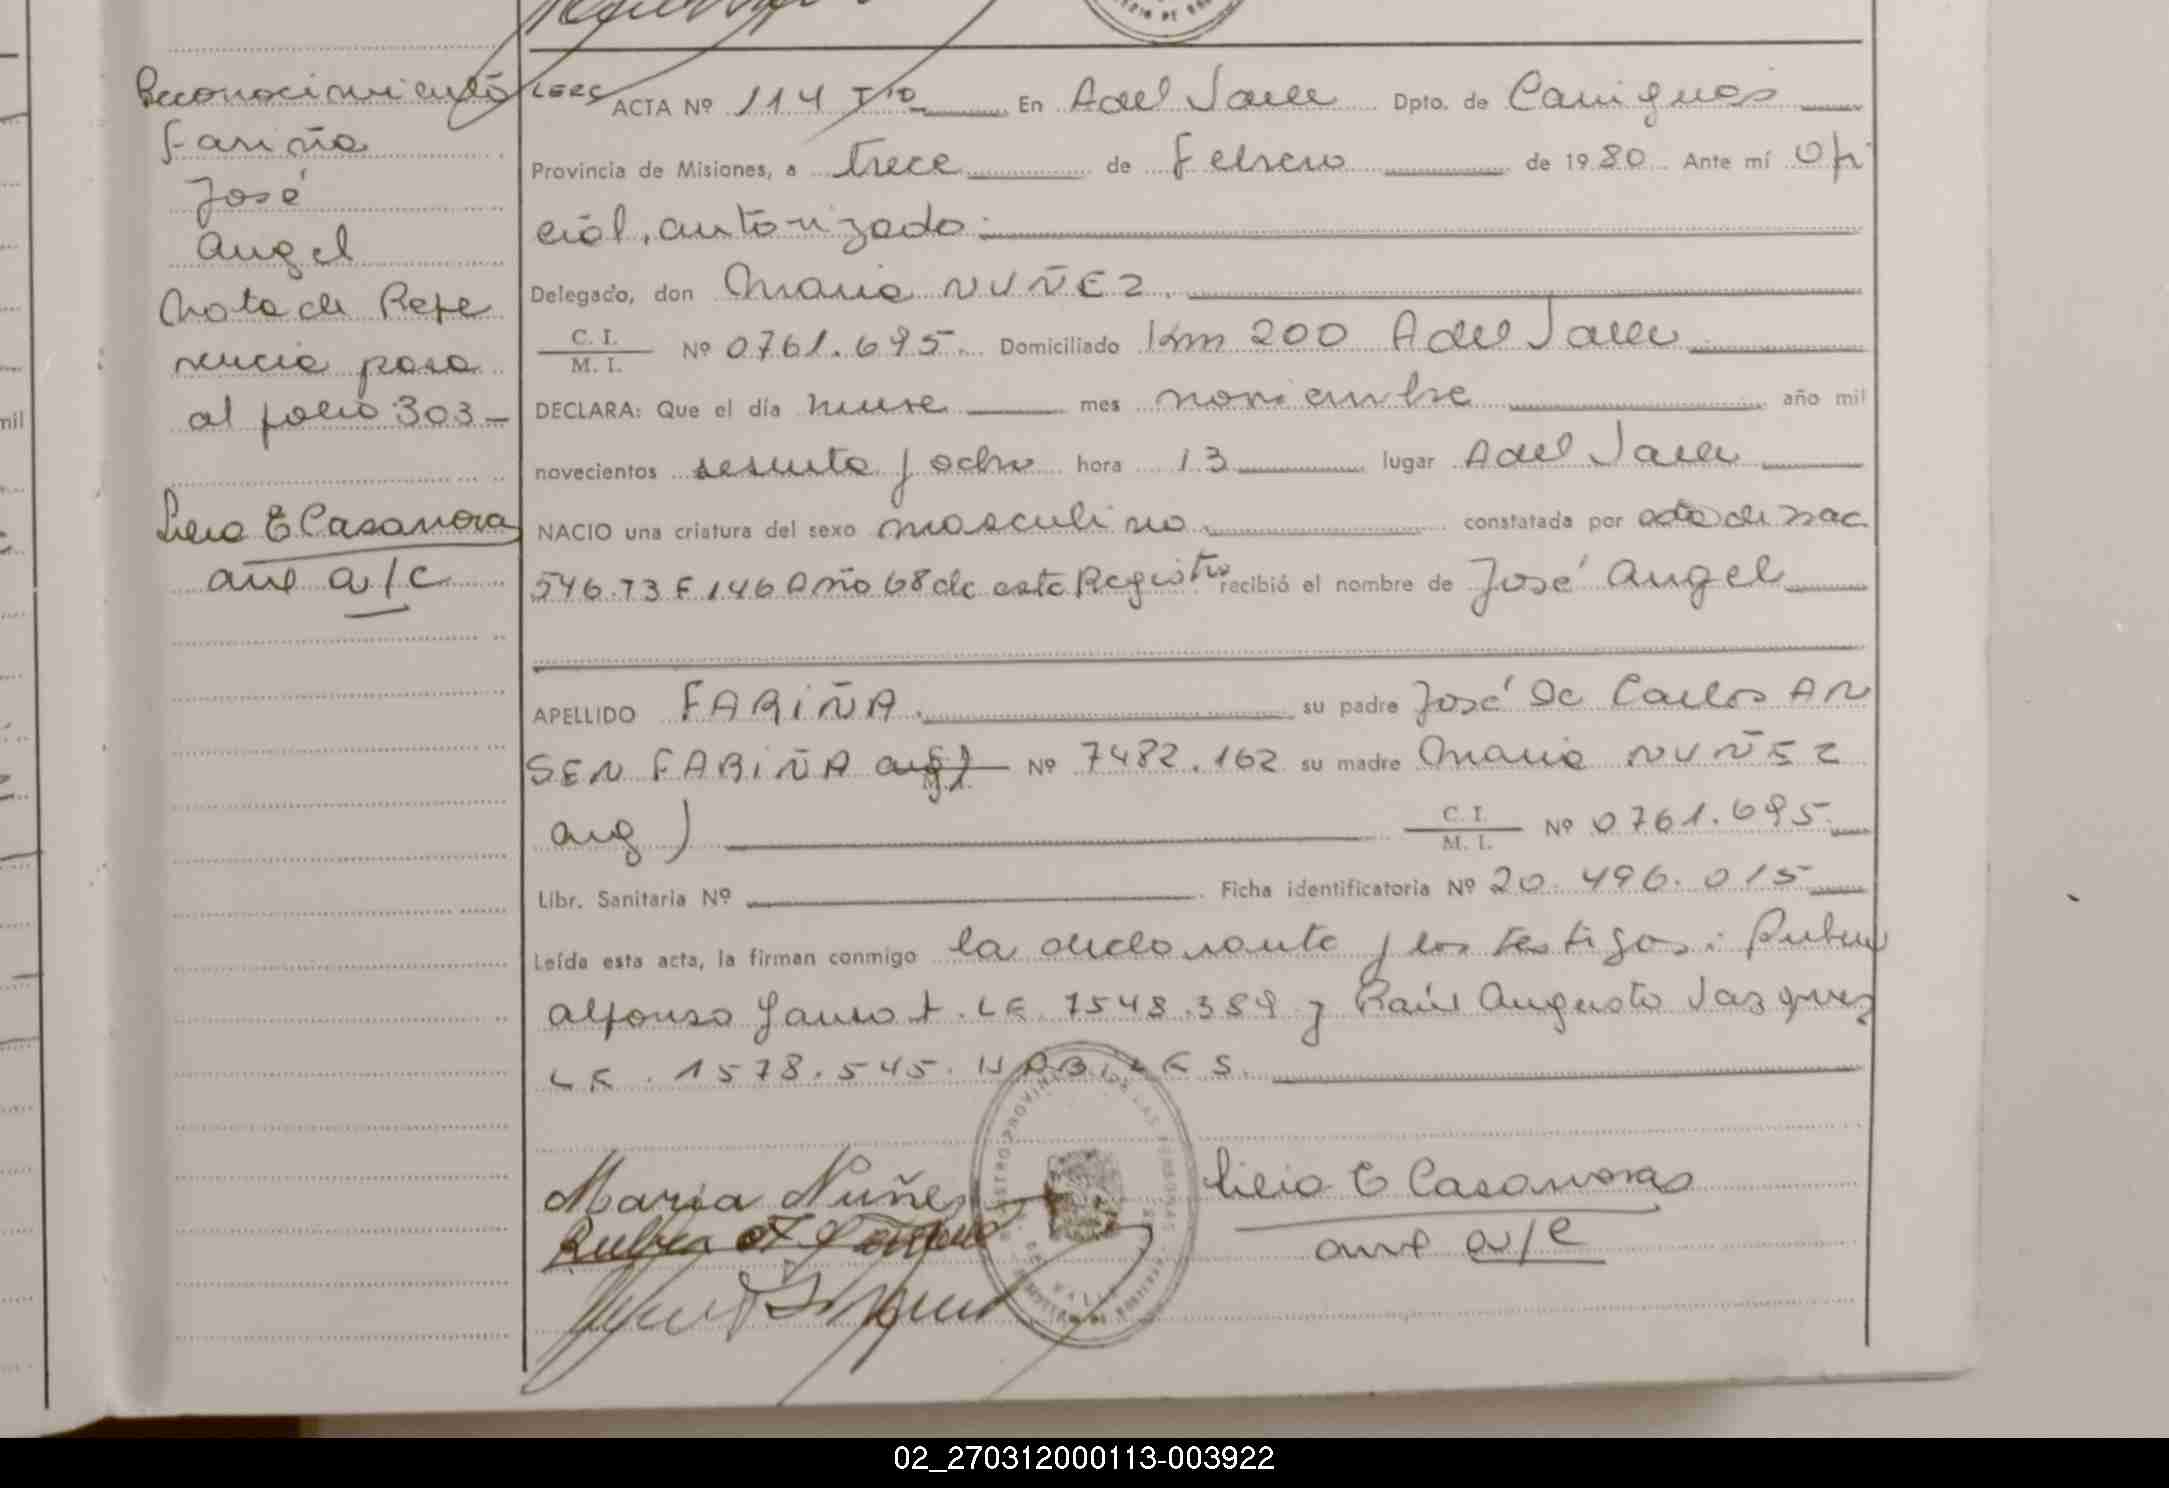 Reconocimiento
Fariña
José
Angel
Nota de Refe
rencia pasa
al folio 303-
Licia E Casanova
aux a/c
ACTA Nº 114 Tº 10 En A del Valle Dpto. de Cainguás
Provincia de Misiones, a trece de Febrero de 1980 Ante mí Ofi
cial, autorizado
Delegado, don Maria NUÑEZ.
C. I.
M. I. Nº 0761.695. Domiciliado Km 200 A del Valle
DECLARA: Que el día nueve mes noviembre año mil
novecientos sesenta y ocho hora 13 lugar A del Valle
NACIO una criatura del sexo masculino constatada por acta de nac
546.T3 F 146 Año 68 de este Registro recibió el nombre de José Angel
APELLIDO FARIÑA. su padre José De Carlos AN
SEN FARIÑA arg) Nº 7482.162 su madre Maria NUÑEZ
arg) C. I.
M. I. Nº 0761.695.
Libr. Sanitaria Nº Ficha identificatoria Nº 20.496.015
Leída esta acta, la firman conmigo la declarante y los testigos: Ruben
Alfonso LE 7548.389 y Raúl Augusto Vazquez
LE. 1578.545. HABILES.
Maria Nuñez
Ruben A
Licia E Casanovas
aux a/c
02_270312000113-003922